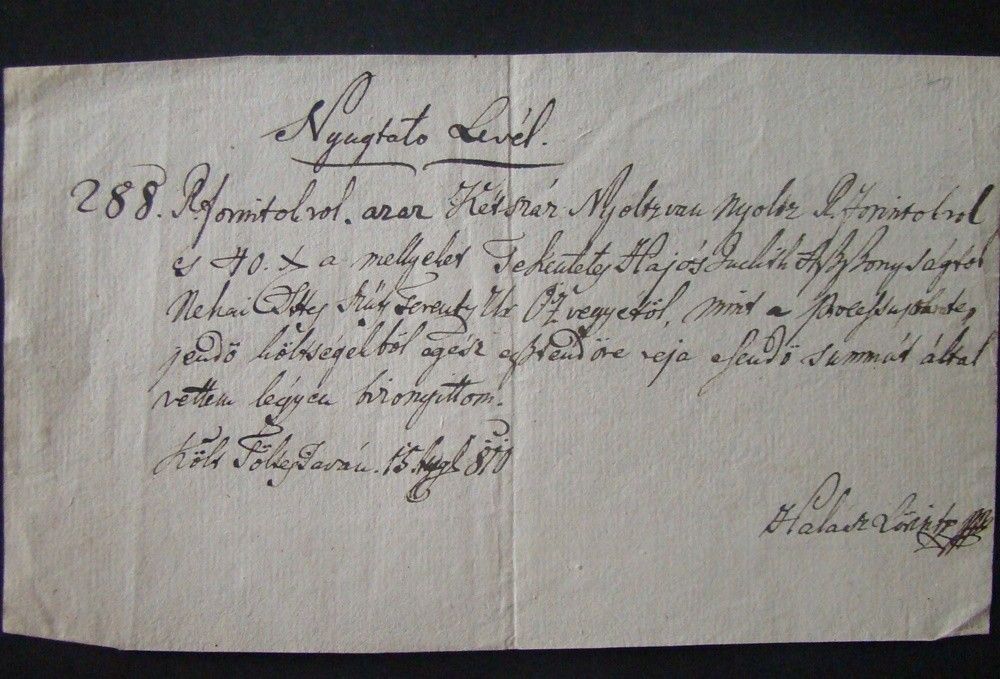 Nyugtato Levél.
288. Rforintokrol. azaz Két száz Nyoltzvan nyoltz R forintokrol
es 40. X a mellyeket Tekéntetes Hajós Judith Aszszonyságtól
Nehai Ttes Ferentz Ur Özvegyétöl, mint a
jendö költségekböl egész esztendöre reja esendö summát által
vettem légyen bizonyittom.
Költ 15. 810
Halász Lörintz